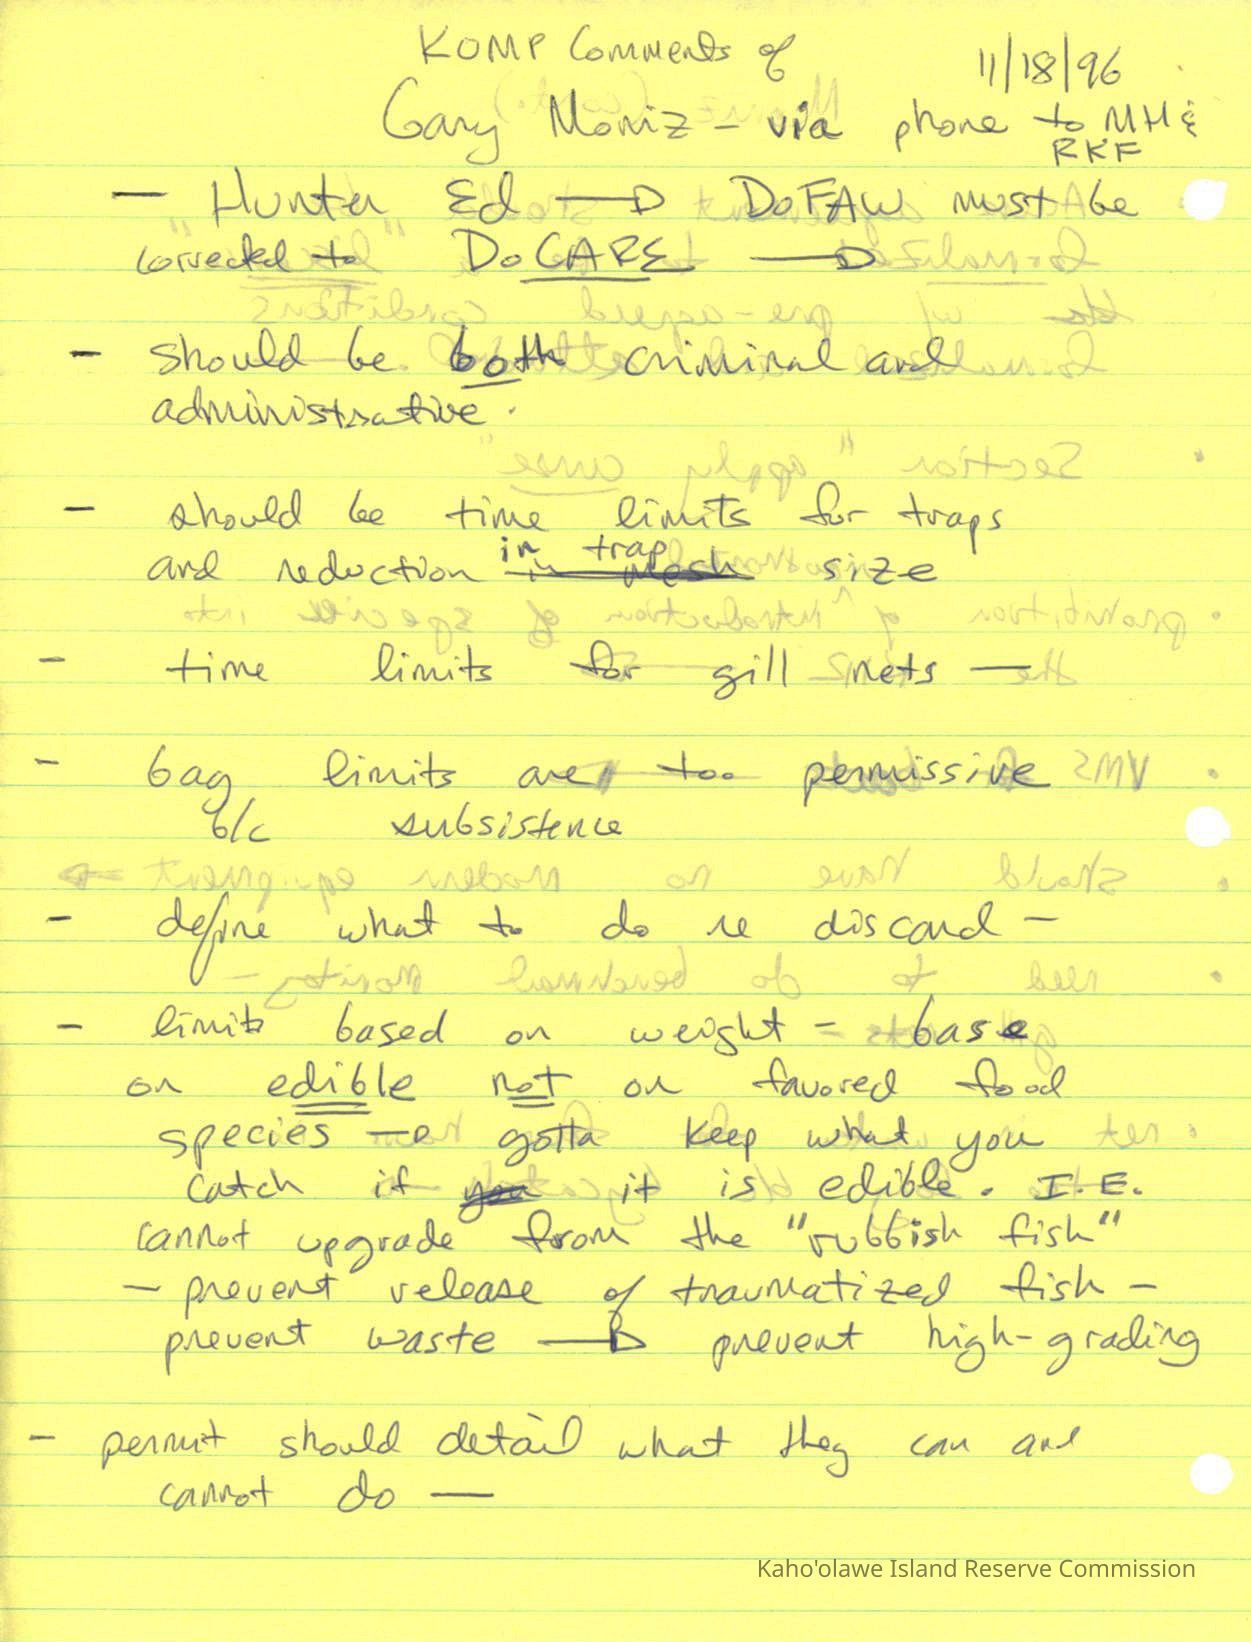 KOMP Comments of
11/18/96
Gary Moniz - via phone to MH &
RKF
- Hunter Ed → DoFAW must be
corrected to DoCARE →
- should be both criminal and
administrative.
- should be time limits for traps
in trap
and reduction in mesh size
- time limits for gill nets —
- bag limits are too permissive
b/c subsistence
- define what to do re discard -
- limits based on weight - base
on edible not on favored food
species → gotta keep what you
catch if you it is edible. I.E.
cannot upgrade from the "rubbish fish"
- prevent release of traumatized fish -
prevent waste → prevent high-grading
- permit should detail what they can and
cannot do —
Kaho'olawe Island Reserve Commission